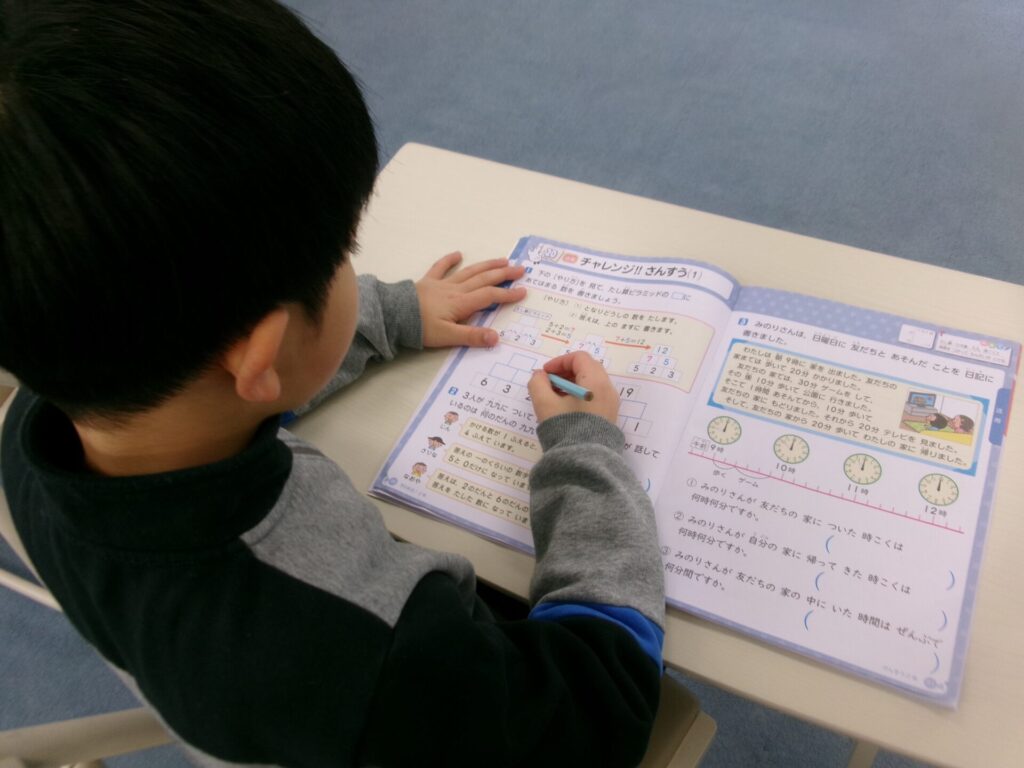 チャレンジ!! さんすう(1)
1 下の〔やり方〕を 見て、たし算ピラミッドの □に
あてはまる 数を 書きましょう。
〔やり方〕 ① となりどうしの 数を たします。
② 答えは、上の ますに 書きます。
5+2=7
2+3=5
7+5=12
12
7 5
7 5
5 2 3
5 2 3
6 3 2
19
1
2 3人が 九九に ついて
話して
いるのは 何のだんの 九九
かける数が 1 ふえると
4 ふえて います。
答えの 一のくらいの 数字
5と 0だけに なって いま
答えは、2のだんと 6のだんの
答えを たした 数に なって いま
なおや
3 みのりさんは、日曜日に 友だちと あそんだ ことを 日記に
書きました。
わたしは 朝 9時に 家を 出ました。友だちの
家までは 歩いて 20分 かかりました。
友だちの 家では、30分 ゲームを して、
その 後 10分 歩いて 公園に 行きました。
そこで 1時間 あそんでから、10分 歩いて
友だちの 家に もどりました。それから 20分 テレビを 見ました。
そして、友だちの 家から 20分 歩いて わたしの 家に 帰りました。
午前 9時
10時
11時
12時
歩く ゲーム
① みのりさんが 友だちの 家に ついた 時こくは
何時何分ですか。
( )
② みのりさんが 自分の 家に 帰って きた 時こくは
何時何分ですか。
( )
③ みのりさんが 友だちの 家の 中に いた 時間は ぜんぶで
何分間ですか。
( )